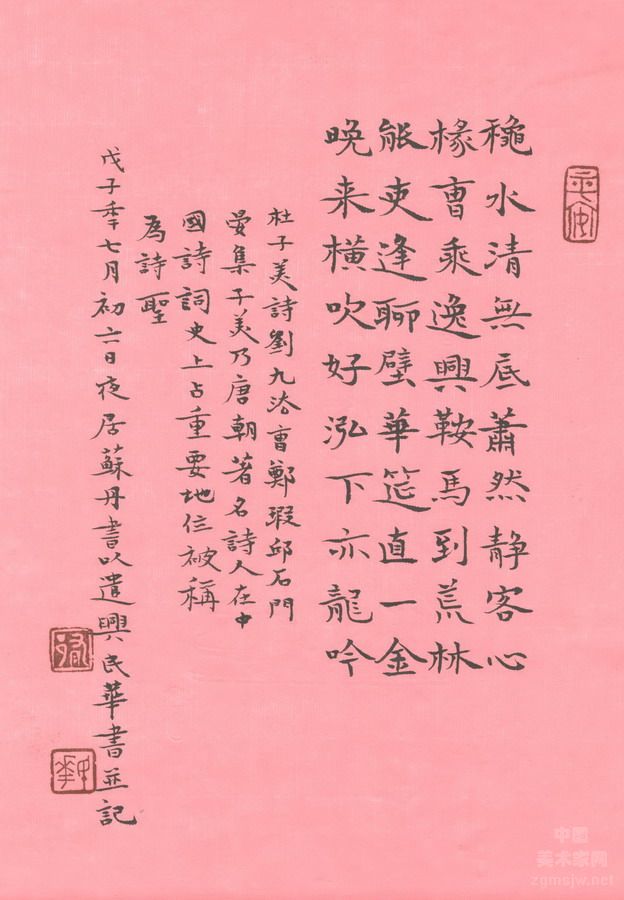 穐水清無底蕭然静客心
椽曹乘逸興鞍馬到荒林
能吏逢聊璧華筵直一金
晚来横吹好泓下亦龍吟
杜子美詩劉九法曹鄭瑕邱石門
晏集子美乃唐朝著名詩人在中
國詩詞史上占重要地位被稱
為詩聖
戊子秊七月初六日夜居蘇丹書以遣興民華書並記
中国
美术家网
zgmsjw.net